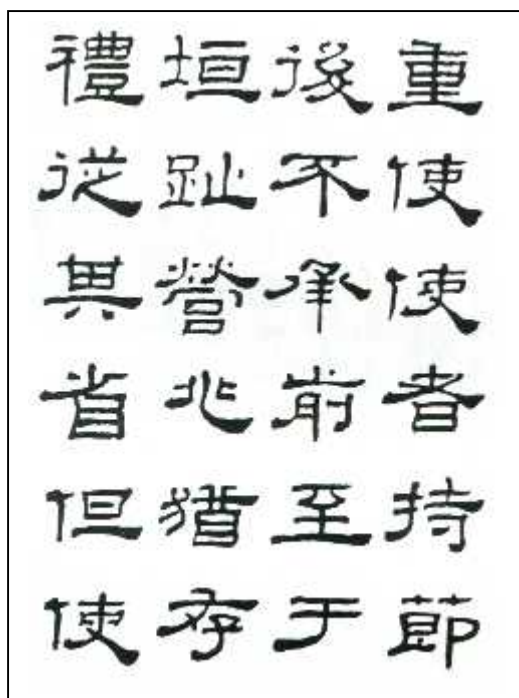 重使使者持節
後不承前至于
垣趾營兆猶存
禮從其省但使